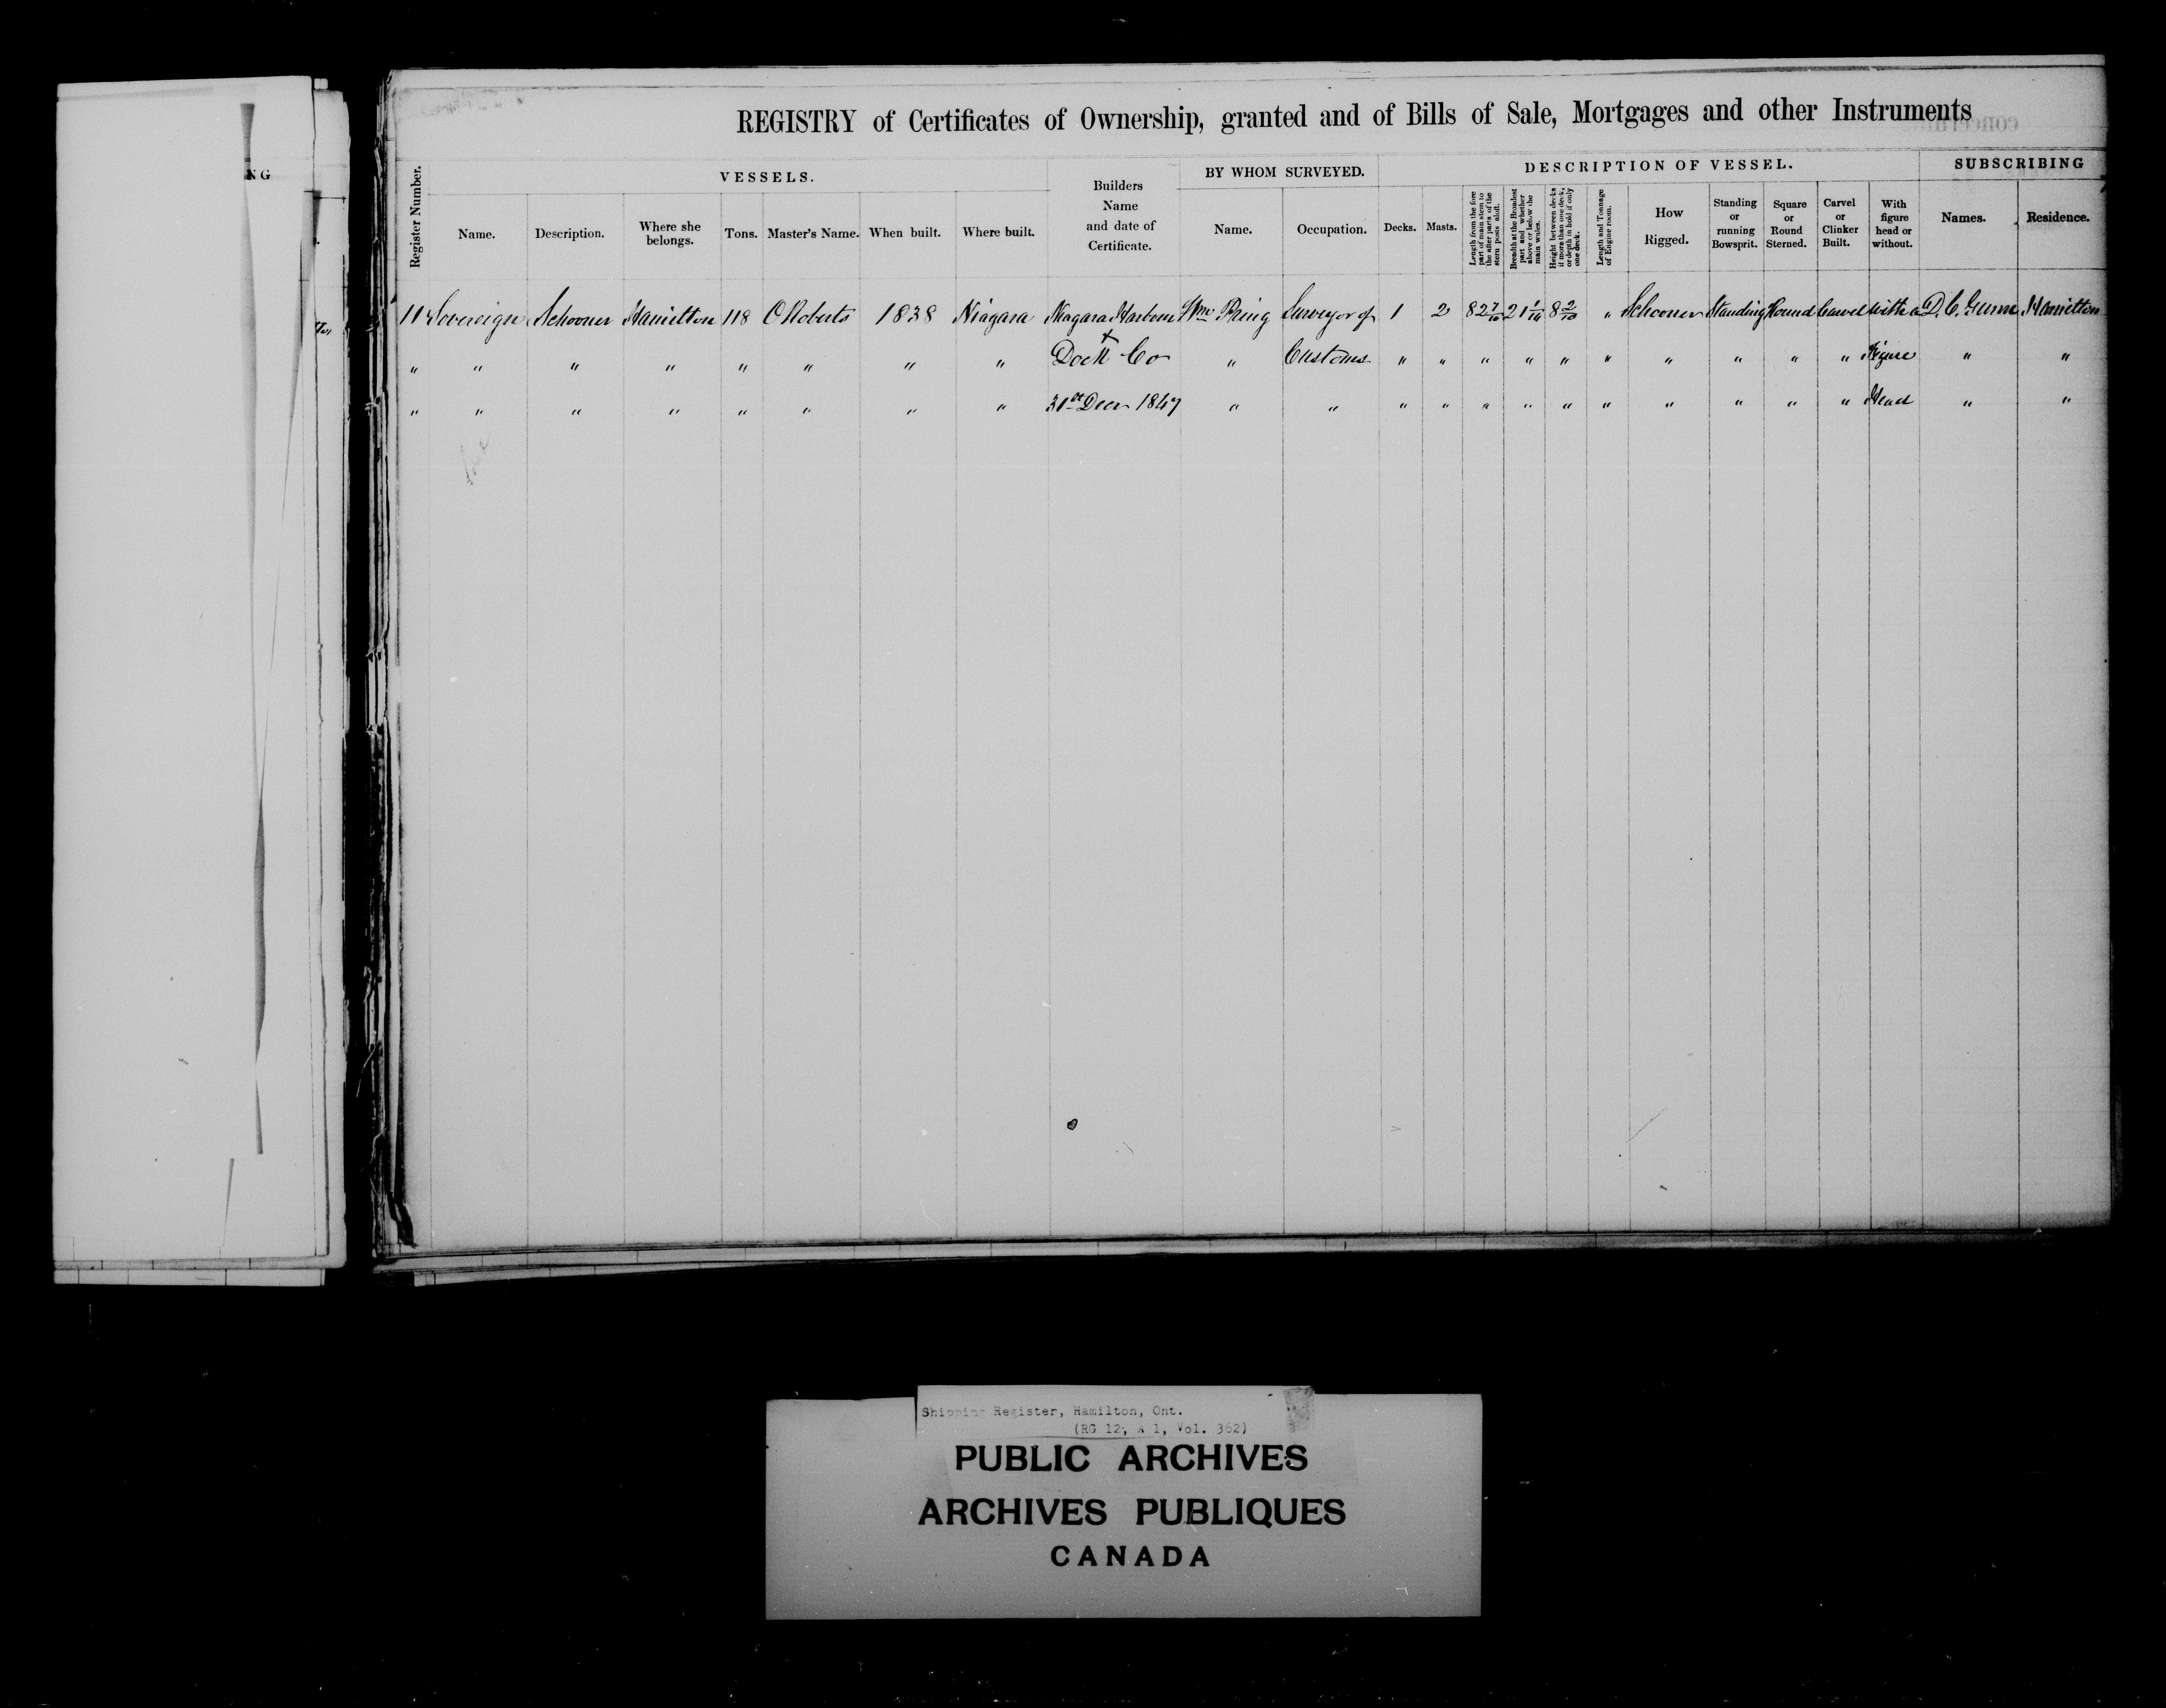 NG
REGISTRY of Certificates of Ownership, granted and of Bills of Sale, Mortgages and other Instruments
Register Number.
VESSELS.
Builders Name and date of Certificate.
BY WHOM SURVEYED.
DESCRIPTION OF VESSEL.
SUBSCRIBING
Name. Description. Where she belongs. Tons. Master's Name. When built. Where built. Name. Occupation. Decks. Masts. Length from the fore part of main stem to the after parts of the stern posts aloft. Breadth at the Broadest part and whether above or below the main wales. Height between decks if more than one deck, or depth in hold if only one deck. Length and Tonnage of Engine room. How Rigged. Standing or running Bowsprit. Square or Round Sterned. Carvel or Clinker Built. With figure head or without. Names. Residence.
11 Sovereign Schooner Hamilton 118 C Roberts 1838 Niagara Niagara Harbour Wm Pring Surveyor of 1 2 82 7/10 21 1/10 8 2/10 " Schooner Standing Round Carvel with a D. C. Gunn Hamilton
" " " " " " " " + Dock Co " Customs " " " " " " " " " " Figure " "
" " " " " " " " 31st Decr 1847 " " " " " " " " " " " " Head " "
Shipping Register, Hamilton, Ont.
(RG 12, A 1, Vol. 362)
PUBLIC ARCHIVES
ARCHIVES PUBLIQUES
CANADA